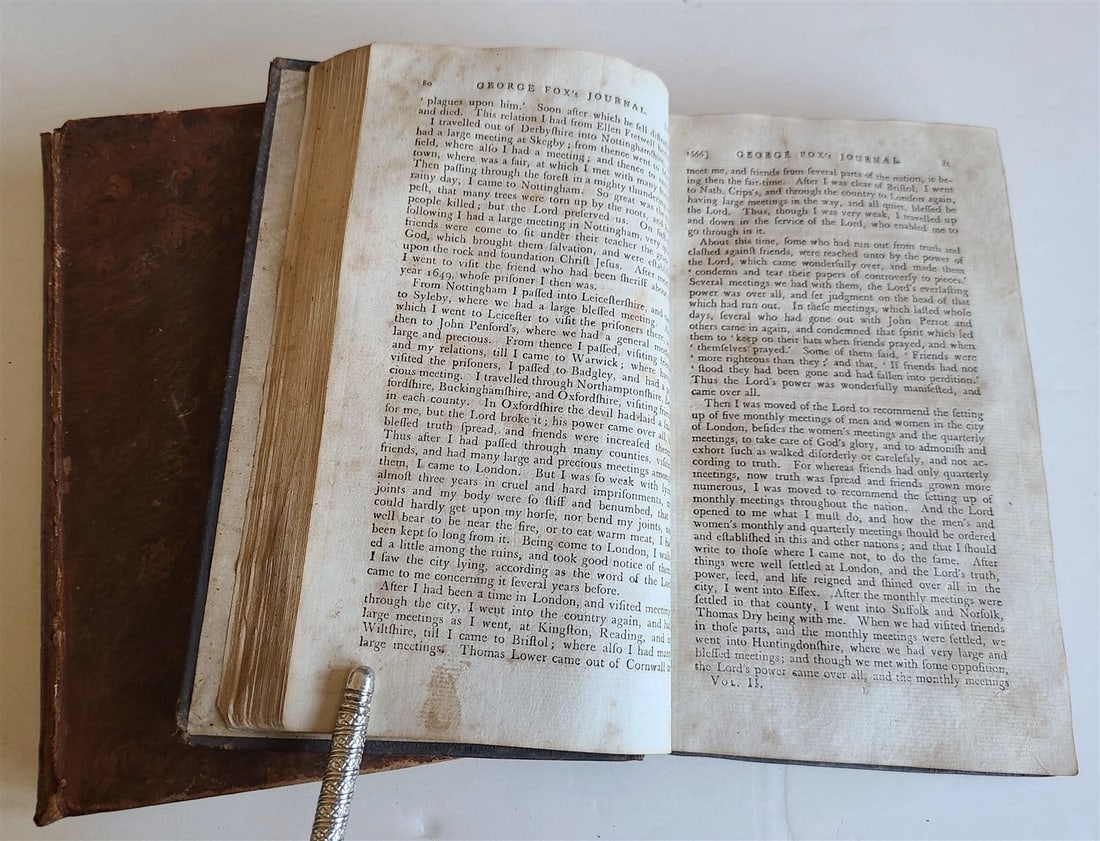 80 GEORGE FOX's JOURNAL.
‘ plagues upon him.’ Soon after which he fell
and died. This relation I had from Ellen Fretwell
I travelled out of Derbyſhire into Nottinghamſhire
had a large meeting at Skegby; from thence went to
field, where alſo I had a meeting; and thence to
town, where was a fair, at which I met with many
Then paſſing through the foreſt in a mighty thundering
rainy day, I came to Nottingham. So great was the
peſt, that many trees were torn up by the roots, and
people killed; but the Lord preſerved us. On
following I had a large meeting in Nottingham, very
friends were come to ſit under their teacher the
God, which brought them ſalvation, and were
upon the rock and foundation Chriſt Jeſus. After
I went to viſit the friend who had been ſheriff about
year 1649, whoſe priſoner I then was.
From Nottingham I paſſed into Leiceſterſhire, and
to Syleby, where we had a large bleſſed meeting.
which I went to Leiceſter to viſit the priſoners there,
then to John Penford's, where we had a general
large and precious. From thence I paſſed, viſiting
and my relations, till I came to Warwick; where
viſited the priſoners, I paſſed to Badgley, and had a
cious meeting. I travelled through Northamptonſhire,
fordſhire, Buckinghamſhire, and Oxfordſhire, viſiting
in each county. In Oxfordſhire the devil had laid a
for me, but the Lord broke it; his power came over all,
bleſſed truth ſpread, and friends were increaſed
Thus after I had paſſed through many counties,
friends, and had many large and precious meetings
them, I came to London. But I was ſo weak with
almoſt three years in cruel and hard impriſonments,
joints and my body were ſo ſtiff and benumbed, that
could hardly get upon my horſe, nor bend my joints,
well bear to be near the fire, or to eat warm meat, I
been kept ſo long from it. Being come to London, I
ed a little among the ruins, and took good notice of
I ſaw the city lying, according as the word of the
came to me concerning it ſeveral years before.
After I had been a time in London, and viſited
through the city, I went into the country again, and
large meetings as I went, at Kingſton, Reading, and
Wiltſhire, till I came to Briſtol; where alſo I had
large meetings. Thomas Lower came out of Cornwall
1666] GEORGE FOX's JOURNAL. 81
meet me, and friends from ſeveral parts of the nation, it be-
ing then the fair-time. After I was clear of Briſtol, I went
to Nath. Criſp's, and through the country to London again,
having large meetings in the way, and all quiet, bleſſed be
the Lord. Thus, though I was very weak, I travelled up
and down in the ſervice of the Lord, who enabled me to
go through in it.
About this time, ſome who had run out from truth and
claſhed againſt friends, were reached unto by the power of
the Lord, which came wonderfully over, and made them
‘ condemn and tear their papers of controverſy to pieces.’
Several meetings we had with them, the Lord's everlaſting
power was over all, and ſet judgment on the head of that
which had run out. In theſe meetings, which laſted whole
days, ſeveral who had gone out with John Perrot and
others came in again, and condemned that ſpirit which led
them to ‘ keep on their hats when friends prayed, and when
‘ themſelves prayed.’ Some of them ſaid, ‘ Friends were
‘ more righteous than they;’ and that, ‘ If friends had not
‘ ſtood they had been gone and had fallen into perdition.’
Thus the Lord's power was wonderfully manifeſted, and
came over all.
Then I was moved of the Lord to recommend the ſetting
up of five monthly meetings of men and women in the city
of London, beſides the women's meetings and the quarterly
meetings, to take care of God's glory, and to admoniſh and
exhort ſuch as walked diſorderly or careleſsly, and not ac-
cording to truth. For whereas friends had only quarterly
meetings, now truth was ſpread and friends grown more
numerous, I was moved to recommend the ſetting up of
monthly meetings throughout the nation. And the Lord
opened to me what I muſt do, and how the men's and
women's monthly and quarterly meetings ſhould be ordered
and eſtabliſhed in this and other nations; and that I ſhould
write to thoſe where I came not, to do the ſame. After
things were well ſettled at London, and the Lord's truth,
power, ſeed, and life reigned and ſhined over all in the
city, I went into Eſſex. After the monthly meetings were
ſettled in that county, I went into Suffolk and Norfolk,
Thomas Dry being with me. When we had viſited friends
in thoſe parts, and the monthly meetings were ſettled, we
went into Huntingdonſhire, where we had very large and
bleſſed meetings; and though we met with ſome oppoſition,
the Lord's power came over all, and the monthly meetings
VOL. II.